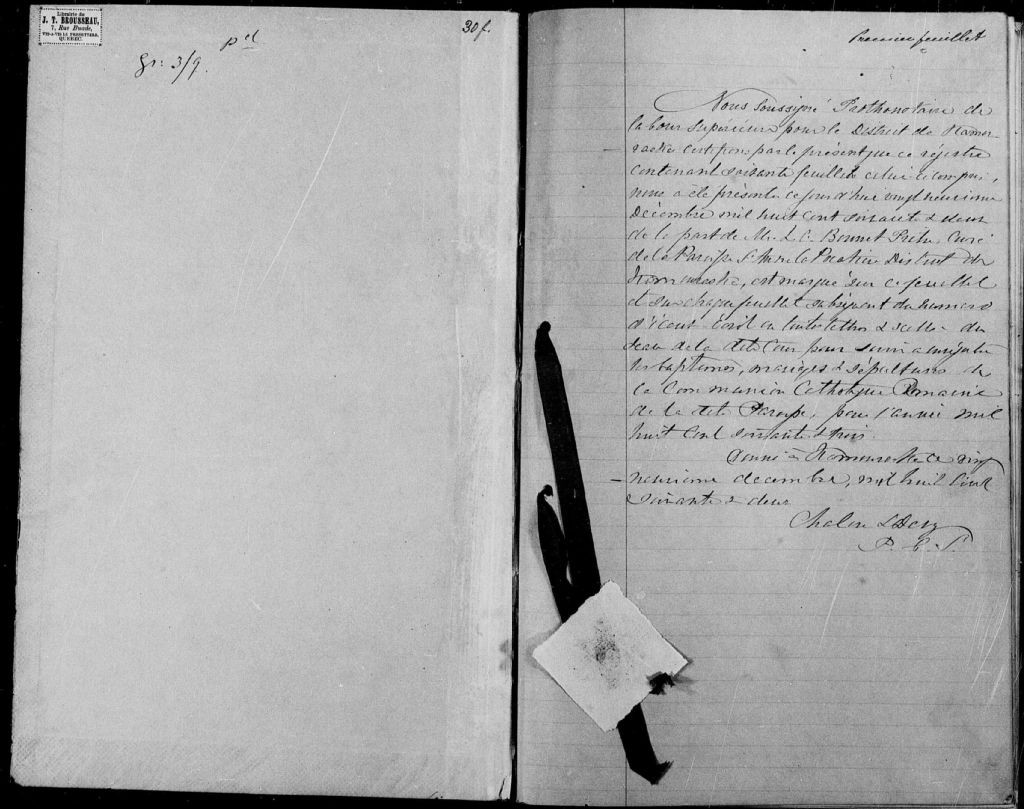 Librairie de
J. T. BROUSSEAU,
7, Rue Buade,
VIS-A-VIS LE PRESBYTERE,
QUEBEC.
30 f.
gr: 3/9.
Premier feuillet
Nous Soussigné Prothonotaire de
la Cour Supérieure pour le District de Kamou-
raska certifions par le présent que ce régistre
contenant soixante feuillets celui ci compris,
nous a été présenté ce jour d'hui vingt neuvieme
Décembre mil huit cent soixante & deux
de la part de Mr L. C. Bonnet Ptre, Curé
de la Paroisse St de la District de
Kamouraska, est marqué sur ce feuillet
et sur chaque feuillet subséquent du numero
écrit en toutes lettres & scellé du
sceau de la dite Cour pour servir a enrégistrer
les baptêmes, mariages & sépultures de
la Communion Catholique Romaine
de la dite Paroisse, pour l'année mil
huit cent soixante & trois.
Donné à Kamouraska ce vingt
neuvieme decembre, mil huit cent
soixante & deux
P. C. S.